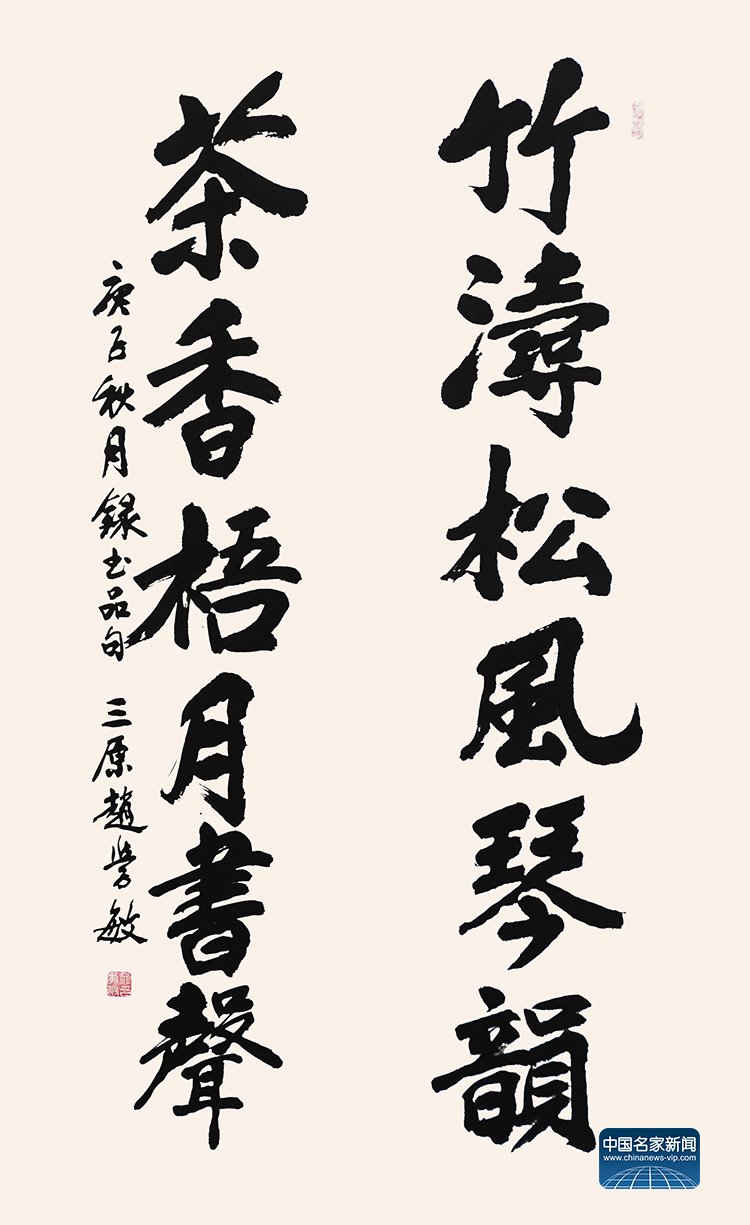 竹濤松風琴韻
茶香梧月書聲
庚子秋月錄品句 三原趙學敏
中国名家新闻
www.chinanews-vip.com